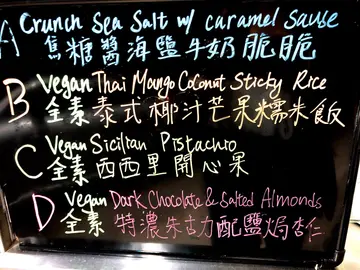 A Crunch Sea Salt w/ caramel sause
焦糖醬海鹽牛奶脆脆
B Vegan Thai Mango Coconut Sticky Rice
全素泰式椰汁芒果糯米飯
C Vegan Sicilian Pistachio
全素西西里開心果
D Vegan Dark Chocolate & Salted Almonds
全素特濃朱古力配鹽焗杏仁